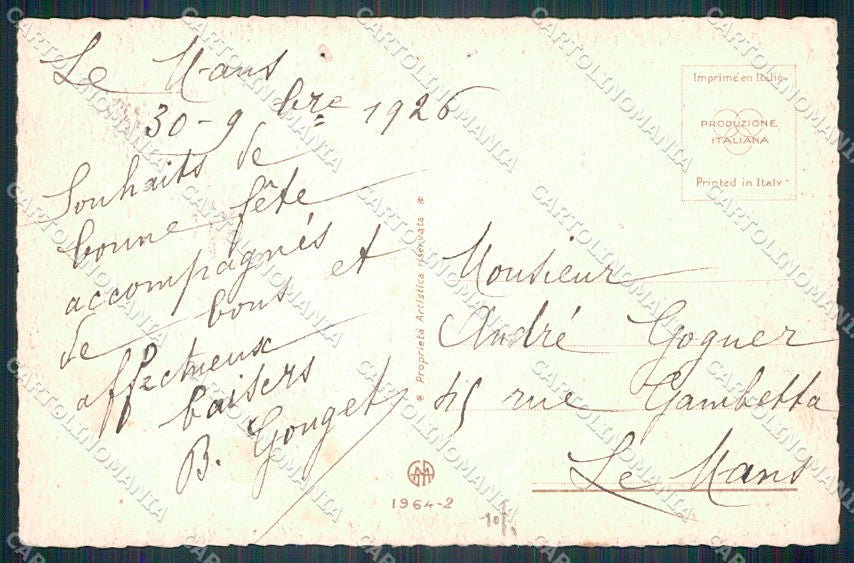 Le Mans
30-9 bre 1926
Souhaits de
bonne fête
accompagnés
de bons et
affectueux
baisers
B. Gouget
Proprietà Artistica riservata
Imprimé en Italie
PRODUZIONE
ITALIANA
Printed in Italy
Monsieur
André Goguer
45 rue Gambetta
Le Mans
1964-2
CARTOLINOMANIA